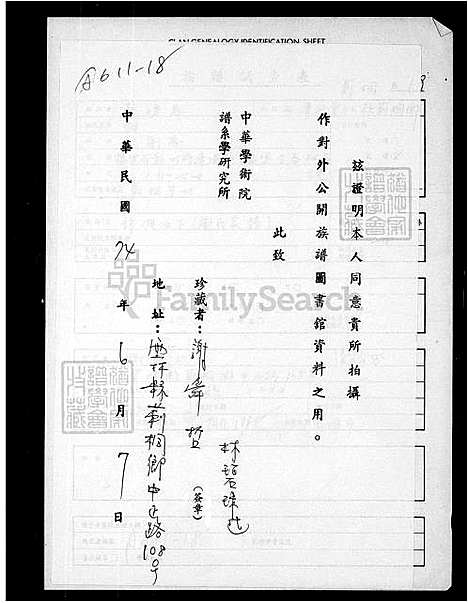 CLAN GENEALOGY IDENTIFICATION SHEET
A611-18
茲證明本人同意貴所拍攝
作對外公開族譜圖書館資料之用。
此致
中華學術院
譜系學研究所
珍藏者：謝 哲 (簽章)
林碧珠
地址：莿桐鄉中正路108号
中華民國 74 年 6 月 7 日
FamilySearch